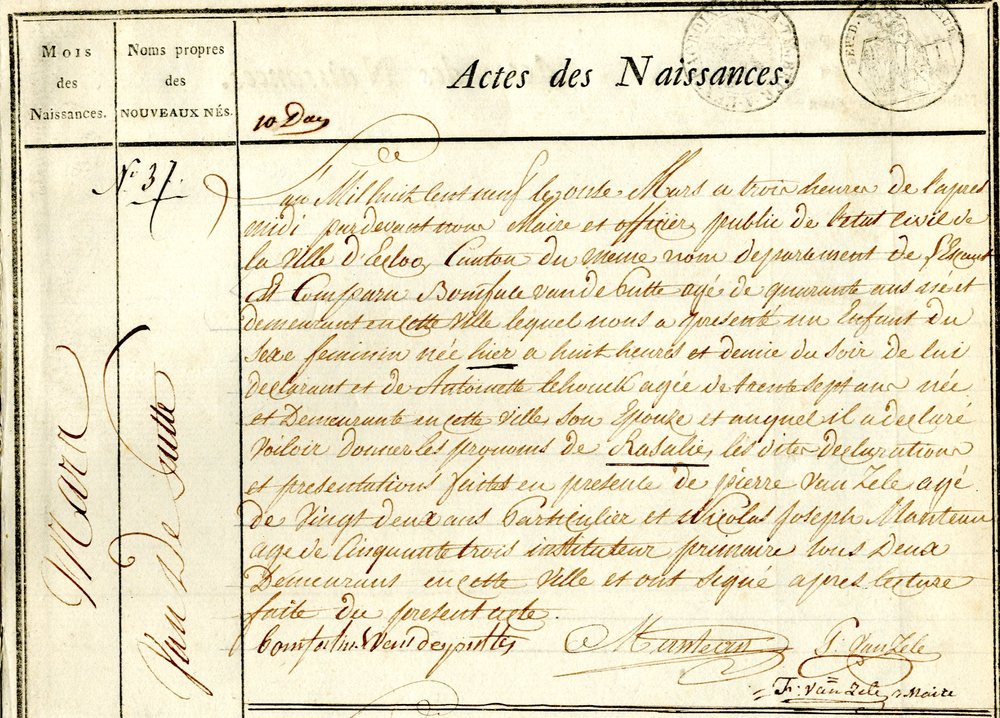 Mois
des
Naissances.
Noms propres
des
NOUVEAUX NÉS.
Actes des Naissances.
10 Day
N° 37.
Mars
Van De Putte
L'an Mil huit cent neuf le onse Mars a trois heures de l'apres
midi pardevant nous Maire et officier public de l'etat civil de
la Ville d'Eecloo, Canton du meme nom departement de l'Escaut
Est Comparu Boniface vande Putte agé de quarante ans né et
demeurant en cette Ville lequel nous a presenté un Enfant du
sexe feminin née hier a huit heures et demie du soir de lui
declarant et de Antoinette agée de trente sept ans née
et Demeurante en cette Ville son Epouze et auquel il a declaré
voiloir donner les prenoms de Rosalie, les dites declaration
et presentations faites en presence de pierre Van Zele agé
de Vingt deux ans Particulier et Nicolas Joseph Manteau
agé de Cinquante trois instituteur primaire tous deux
Demeurans en cette Ville et ont signé apres lecture
faite du present acte.
Van de putte
Manteau
P. Van Zele
Fr. Van Zele, Maire